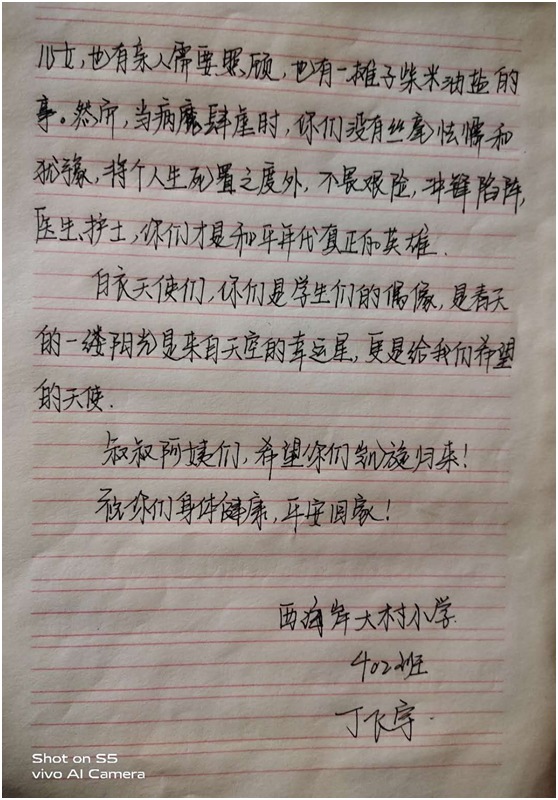 儿女,也有亲人需要照顾,也有一摊子柴米油盐的
事。然所,当病魔肆虐时,你们没有丝毫怯懦和
犹豫,将个人生死置之度外,不畏艰险,冲锋陷阵,
医生、护士,你们才是和平年代真正的英雄.
白衣天使们,你们是学生们的偶像,是春天
的一缕阳光是来自天空的幸运星,更是给我们希望
的天使.
叔叔阿姨们,希望你们凯旋归来!
祝你们身体健康,平安回家!
西海岸大村小学
402班
丁飞宇.
Shot on S5
vivo AI Camera